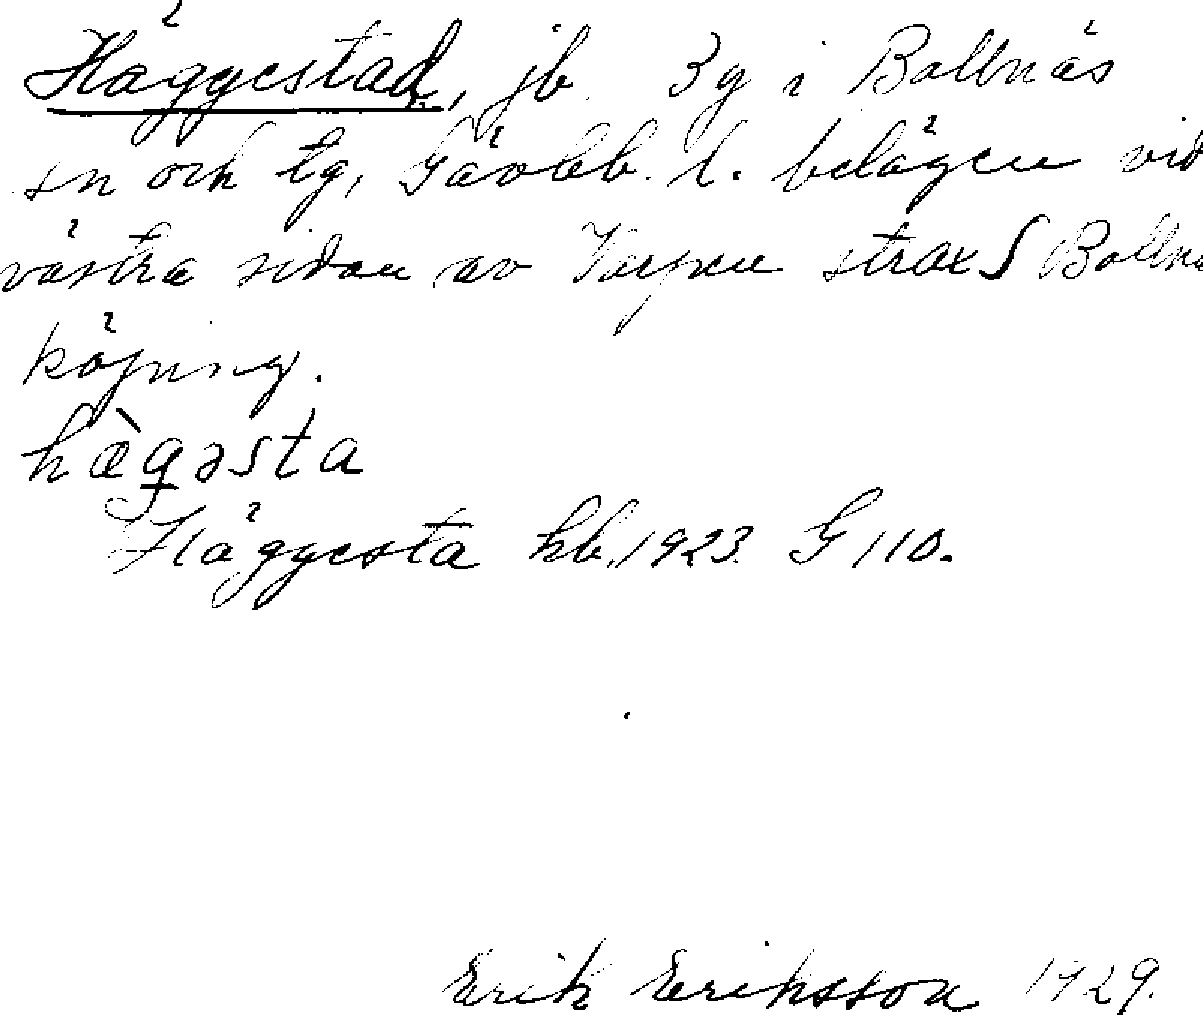 Häggestad, jb. 3g i Bollnäs
sn och tg, Gävleb. l. belägen vid
västra sidan av Varpen strax S Bollnä
köping.
hæ̀gəsta
Häggesta kb. 1923. G 110.
Erik Eriksson 1929.